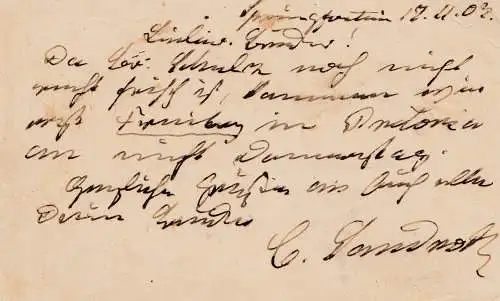 17.11.02.
Lieber Bruder!
Da Br. Schulz noch nicht
recht frisch ist, kommen wir
erst Freitag in Pretoria
an nicht Donnerstag.
Herzliche Grüße an Euch alle
Dein Bruder
C.